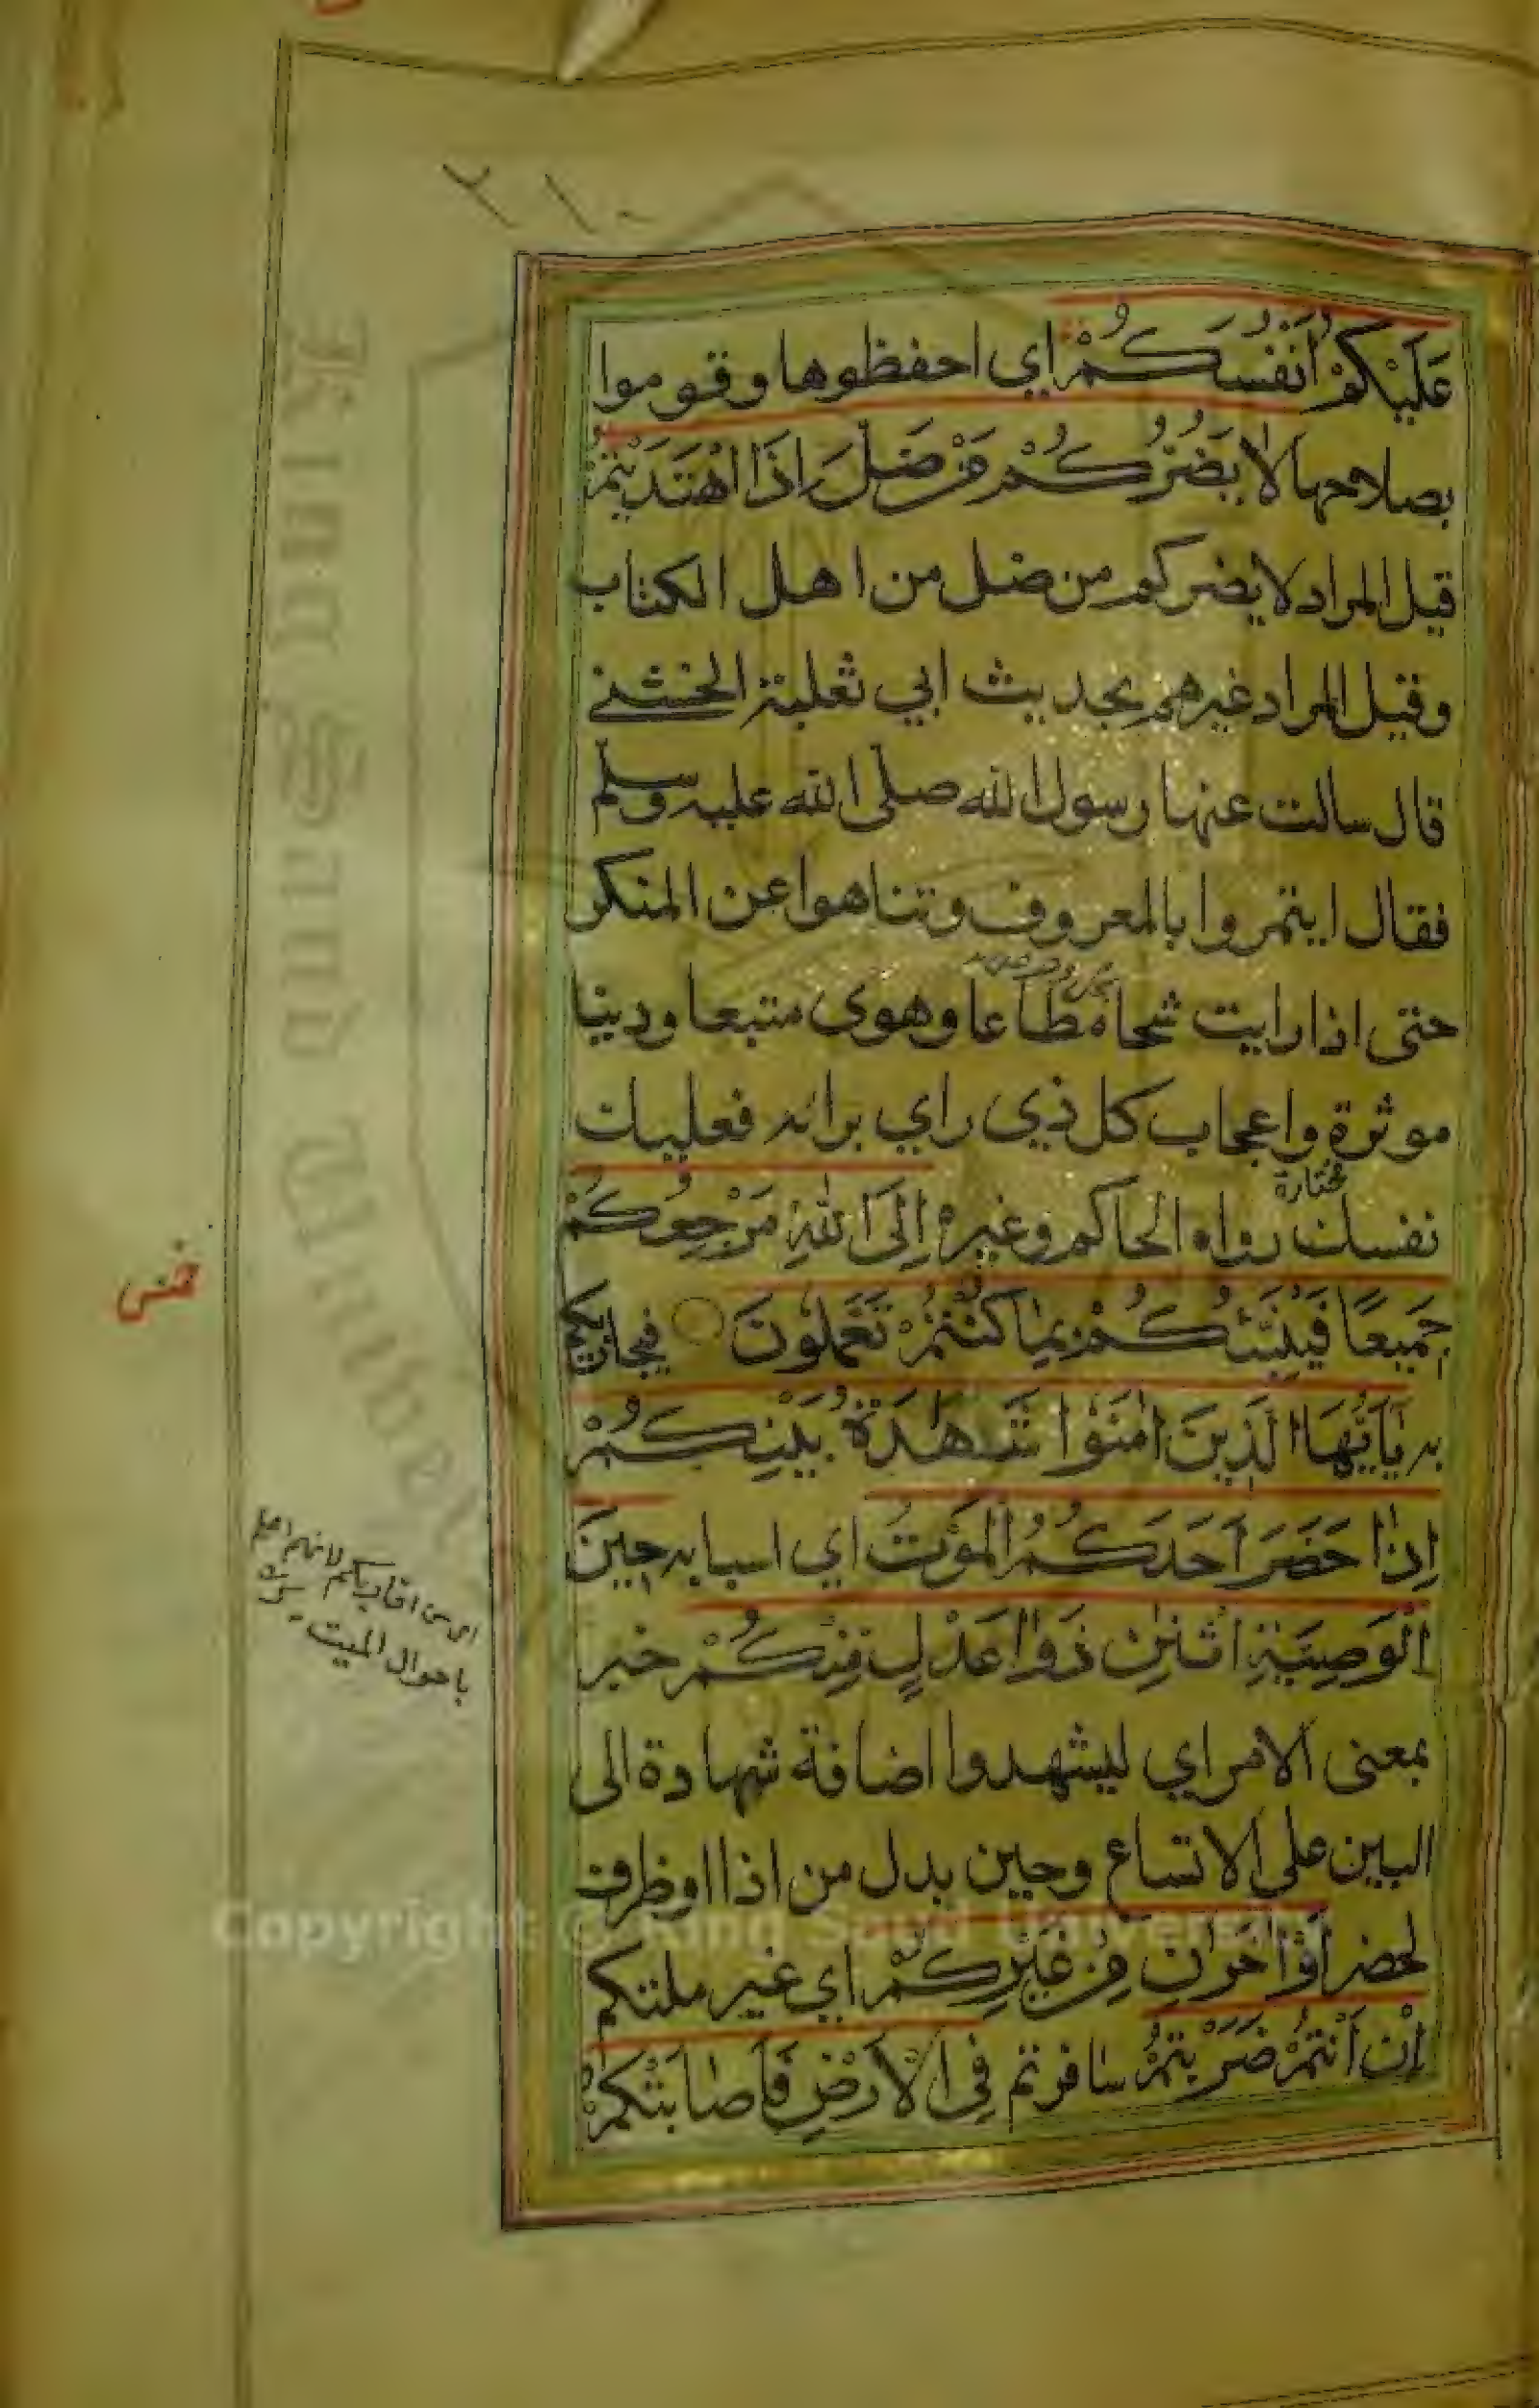 ٢١٠
عَلَيْكُمْ أَنْفُسَكُمْ اي احفظوها وقوموا
بصلاحها لَا يَضُرُّكُمْ مَنْ ضَلَّ إِذَا اهْتَدَيْتُمْ
قيل المراد لا يضركم من ضل من اهل الكتاب
وقيل المراد غيرهم بحديث ابي ثعلبة الخشني
قال سالت عنها رسول الله صلى الله عليه وسلم
فقال ايتمروا بالمعروف وتناهوا عن المنكر
حتى اذا رايت شحا مطاعا وهوى متبعا ودنيا
موثرة واعجاب كل ذي راي برائه فعليك
مختارة
نفسك رواه الحاكم وغيره إِلَى اللَّهِ مَرْجِعُكُمْ
جَمِيعًا فَيُنَبِّئُكُمْ بِمَا كُنْتُمْ تَعْمَلُونَ فيجازيكم
به يَٰأَيُّهَا الَّذِينَ اٰمَنُوا شَهٰدَةُ بَيْنِكُمْ
إِذَا حَضَرَ أَحَدَكُمُ الْمَوْتُ اي اسبابه حِينَ
الْوَصِيَّةِ اثْنٰنِ ذَوَا عَدْلٍ مِنْكُمْ خبر
بمعنى الامر اي ليشهدوا اضافة شهادة الى
البين على الاتساع وحين بدل من اذا او ظرف
لحضر أَوْ اٰخَرٰنِ مِنْ غَيْرِكُمْ اي غير ملتكم
إِنْ أَنْتُمْ ضَرَبْتُمْ سافرتم فِي الْأَرْضِ فَأَصَابَتْكُمْ
اي من اقاربكم لانهم اعلم
باحوال الميت
King Saud University
Copyright © King Saud University